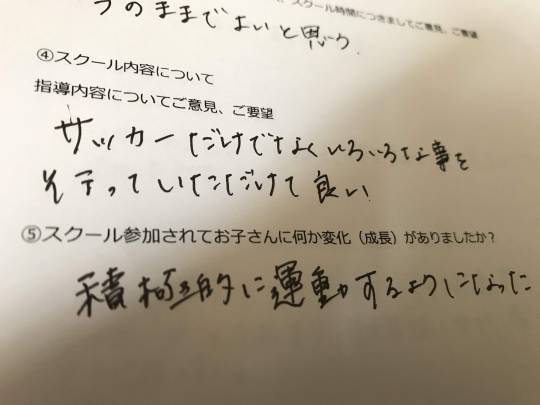 スクール時間につきましてご意見、ご要望
今のままでよいと思う
④スクール内容について
指導内容についてご意見、ご要望
サッカーだけでなくいろいろな事を
を行っていただけて良い
⑤スクール参加されてお子さんに何か変化（成長）がありましたか？
積極的に運動するようになった